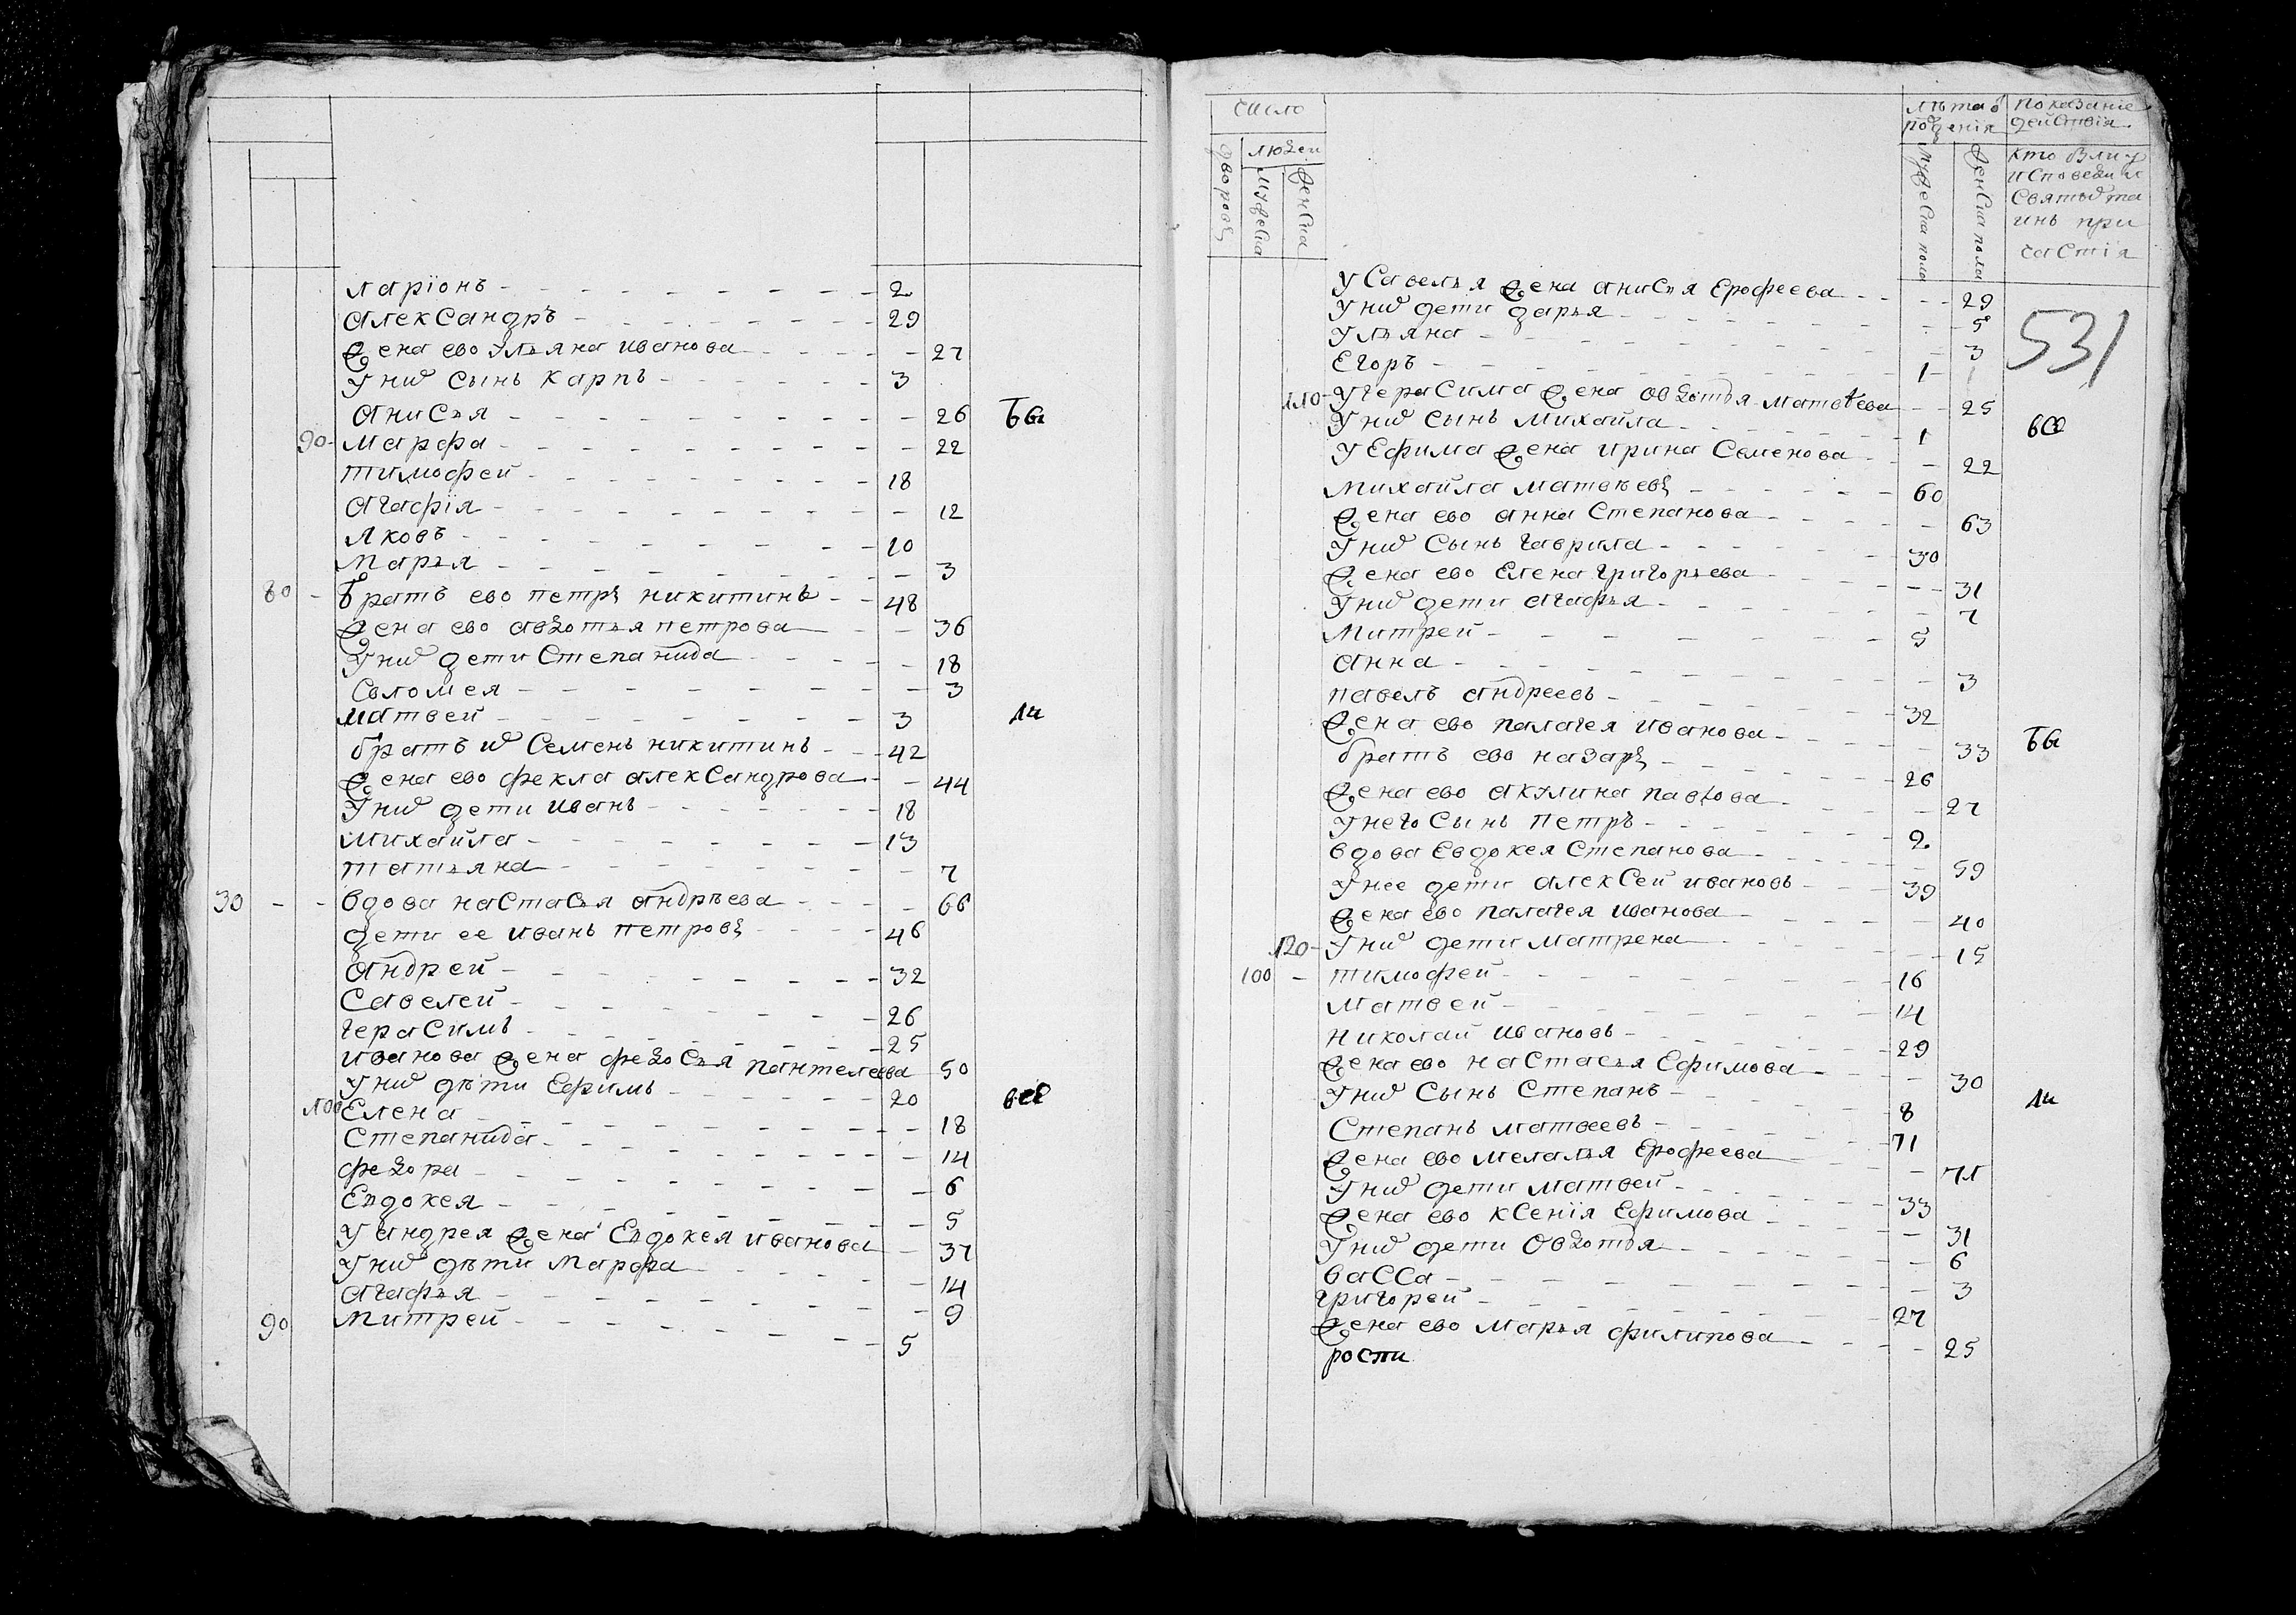 Ларіонъ - 2
Александръ - 29
Жена ево Ульяна Иванова - 27
У них сынъ Карпъ - 3
Анисья - 26 бы
90 - Марфа - 22
Тимофей - 18
Агафія - 12
Яковъ - 10
Марья - 3
80 - Братъ ево Петръ Никитинъ - 48
Жена ево Авдотья Петрова - 36
У них дети Степанида - 18
Соломея - 3
Матвей - 3 ли
братъ их Семенъ Никитинъ - 42
Жена ево Фекла Александрова - 44
У них дети Иванъ - 18
Михайла - 13
Татьяна - 7
30 - - Вдова Настасья Андрѣева - 66
дети ее Иванъ Петровъ - 46
Андрей - 32
Савелей - 26
Герасимъ - 25
Иванова жена Федосья Пантелеева 50
У них дѣти Ефимъ - 20 все
100 Елена - 18
Степанида - 14
Федора - 6
Евдокея - 5
У Андрея жена Евдокея Иванова - 37
У них дѣти Марфа - 14
Агафья - 9
90 Митрей - 5
число
дворовъ
людей
мужеска
женска
лѣта от рожденія
мужеска пола
женска пола
показаніе действія
кто были у
исповеди и
святых та
инъ при
частія
У Савелья жена Анисья Ерофеева - 29
У них дети Дарья - 5
531
Ульяна - 3
Егоръ - 1
110 - У Герасима жена Овдотья Матвеева - 25
У них сынъ Михайла - 1 все
У Ефима жена Ирина Семенова - 22
Михайла Матвѣевъ - 60
Жена ево Анна Степанова - 63
У них сынъ Гаврила - 30
Жена ево Елена Григорьева - 31
У них дети Агафья - 7
Митрей - 5
Анна - 3
Павелъ Андреевъ - 32
Жена ево Палагея Иванова - 33 бы
братъ ево Назаръ - 26
Жена ево Акулина Павлова - 27
У него сынъ Петръ - 2
Вдова Евдокея Степанова - 59
У нее дети Алексей Ивановъ - 39
Жена ево Палагея Иванова - 40
120 - У них дети Матрена - 15
100 - Тимофей - 16
Матвей - 14
Николай Ивановъ - 29
Жена ево Настасья Ефимова - 30
У них сынъ Степанъ - 8 ли
Степанъ Матвеевъ - 71
Жена ево Меланья Ерофеева - 71
У них дети Матвей - 33
Жена ево Ксенія Ефимова - 31
У них дети Овдотья - 6
Васса - 3
Григорей - 27
Жена ево Марья Филипова - 25
рости